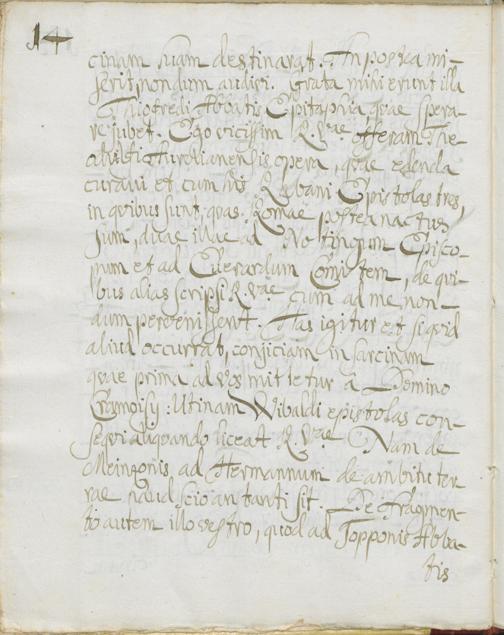 14
cinam suam destinarat. An postea mi-
serit, nondum audivi. Grata mihi erunt illa
Abbatis Epitaphia, quae spera-
re jubet. Ego vicissim R. Vrae offeram The-
ofridi opera, quae edenda
curavi et cum his Rabani Epistolas tres,
in quibus sunt, quas Romae postea nactus
sum, duae illae ad Notingum Episco-
pum et ad Everardum Comitem, de qui-
bus alias scripsi R. Vrae cum ad me non-
dum pervenissent. Has igitur et si quid
aliud occurrat, conjiciam in sarcinam
quae prima ad vos mittetur à Domino
Cramoisy: Utinam Wibaldi epistolas con-
sequi aliquando liceat R. Vrae Nam de
Meingonis ad Hermannum de ambitu ter-
rae haud scio an tanti sit. De Fragmen-
to autem illo vestro, quod ad Popponis Abba-
tis